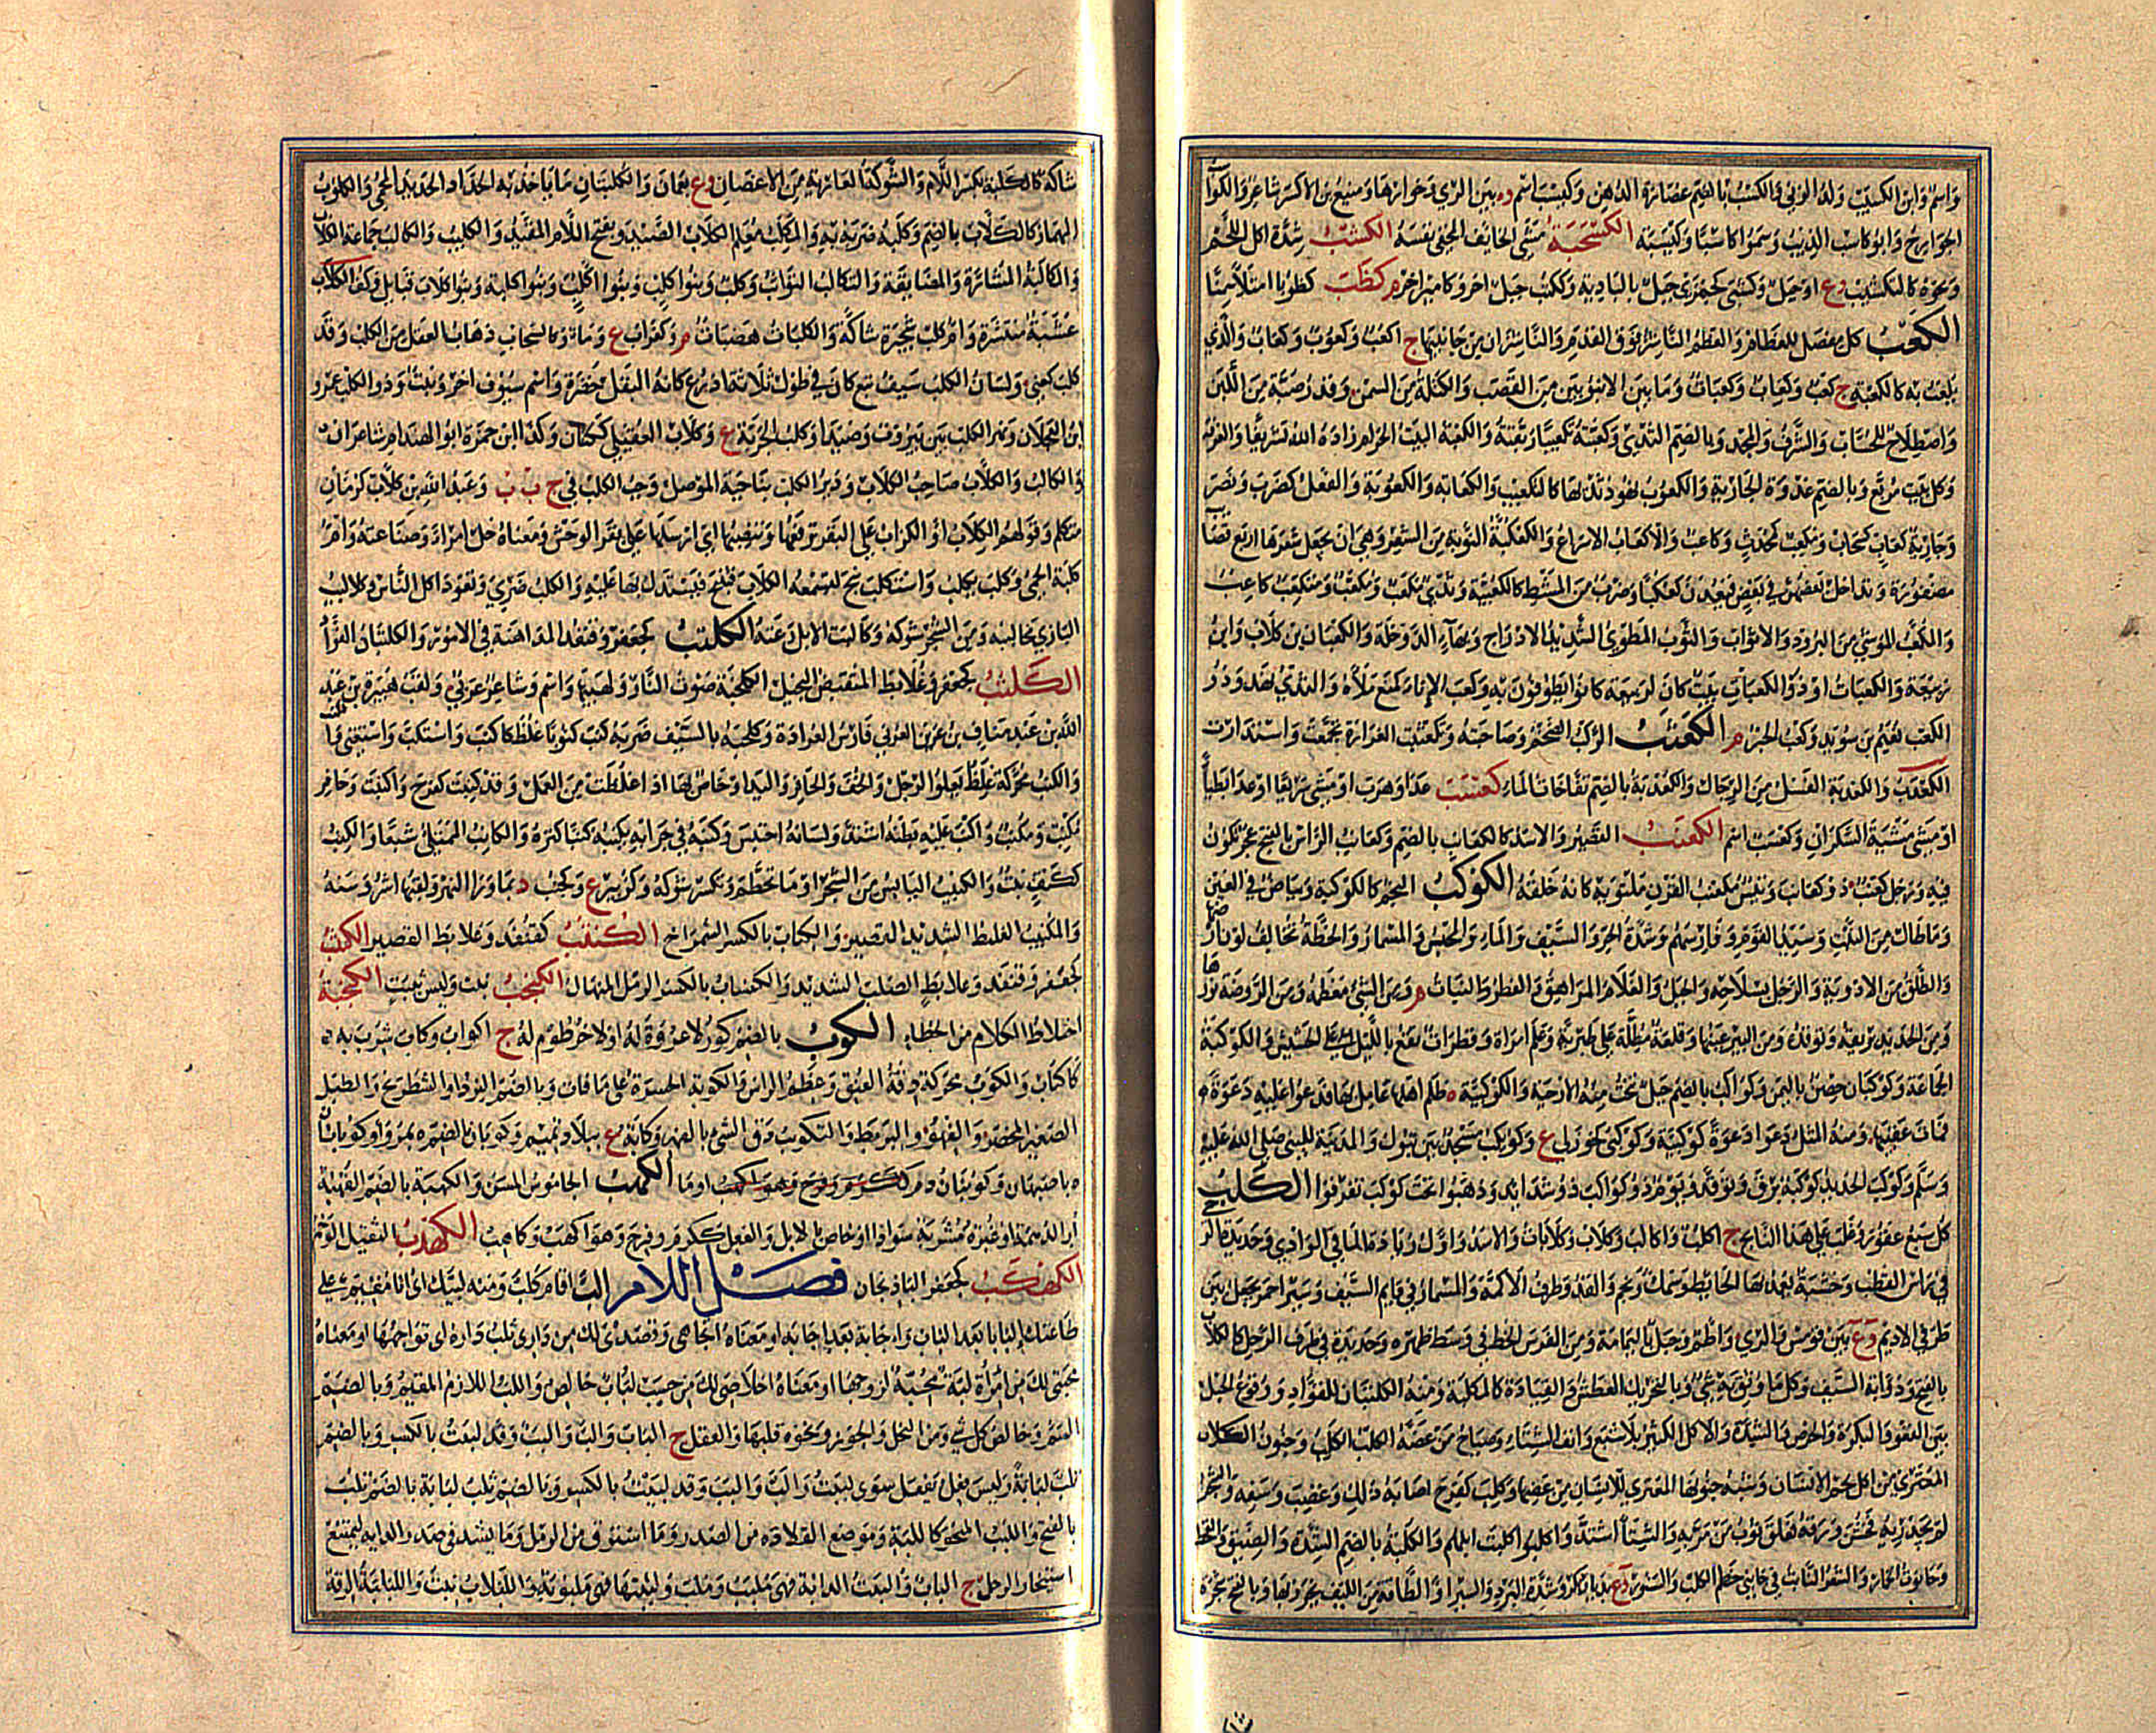 وَاسْمٌ وَابن الكسيب وَلد الزنى وَالكسب بالضم عصارة الدهن وكيسب اسم ه بين الري وخوارها ومنيع بن الاكسب شاعر وَالكواسب
الجوارح وَابو كاسب الذيب وَسموا كاسبا وكيسبة الكسحبة مشي الخايف المخفي نفسه الكشب شدة اكل اللحم
ونحوه كالتكشيب وع او جبل وكشبى كجمزى جبل بالبادية وككتب جبل اخر وكامير اخر م كظب كظوبا امتلأ سمنا
الكعب كل مفصل للعظام والعظم الناشز فوق القدم والناشزان من جانبيها ج اكعب وكعوب وكعاب والذي
يلعب به كالكعبة ج كعب وكعاب وكعبات وما بين الانبوبين من القصب والكتلة من السمن وقدر صبة من اللبن
واصطلاح للحساب والشرف والمجد وبالضم الثدي وكعبته تكعيبا ربعته والكعبة البيت الحرام زاده الله تشريفا والغرفة
وكل بيت مربع وبالضم عذرة الجارية والكعوب نهود ثديها كالتكعيب والكعابة والكعوبة والفعل كضرب ونصر
وجارية كعاب كسحاب ومكعب كمحدث وكاعب والاكعاب الاسراع والكعكبة النونة من الشعر وهي ان تجعل شعرها اربع قصايب
مضفورة وتداخل بعضهن في بعض فيعدن كعكبا وضرب من المشط كالكعبية وثدي مكعب ومكعب ومتكعب كاعب
والمكعب الموشى من البرود والاثواب والثوب المطوي الشديد الادراج وبهاء الدوخلة والكعبان بن كلاب وابن
ربيعة والكعبات او ذو الكعبات بيت كان لربيعة كانوا يطوفون به وكعب الاناء كمنع ملأه والثدي نهد وذو
الكعب نعيم بن سويد وكعب الحبر م الكعثب الركب الضخم وصاحبته وتكعثبت العرارة تجمعت واستدارت
الكعدب والكعدبة الفسل من الرجال والكعدبة بالضم نفاخات الماء كعسب عدا وهرب او مشى سريعا او عدا بطيا
او مشى مشية السكران وكعسب اسم الكعنب القصير والاسد كالكعاب بالضم وكعاب الراس بالفتح عجر تكون
فيه ورجل كعنب ذو كعاب وتيس مكعنب القرن ملتويه كانه حلقة الكوكب النجم كالكوكبة وبياض في العين
وما طال من النبت وسيد القوم وفارسهم وشدة الحر والسيف والماء والمحبس والمسمار والخطة تخالف لون ارضها
والطلق من الاودية والرجل بسلاحه والجبل والغلام المراهق والفطر لنبات م ومن الشيء معظمه ومن الروضة نورها
ومن الحديد بريقه وتوقده ومن البير عينها وقلعة مطلة على طبرية وعلم امراة وقطرات تقع بالليل على الحشيش والكوكبة
الجماعة وكوكبان حصن باليمن وكواكب بالضم جبل تنحت منه الارحية والكوكبية ه ظلم اهلها عامل بها فدعوا عليه دعوة
فمات عقبها ومنه المثل دعوا دعوة كوكبية وكوكبى كخوزلى ع وكويكب مسجد بين تبوك والمدينة للنبي صلى الله عليه
وسلم وكوكب الحديد كوكبة برق وتوقد ويوم ذو كواكب ذو شدايد وذهبوا تحت كوكب تفرقوا الكلب
كل سبع عقور وغلب على هذا النابح ج اكلب واكالب وكلاب وكلابات والاسد واول زيادة الماء في الوادي وحديدة الرحى
في راس القطب وخشبة يعمد بها الحايط وسمك ونجم والقد وطرف الاكمة والمسمار في قايم السيف وسير احمر يجعل بين
طرفي الاديم وع بين قومس والري واطم وجبل باليمامة ومن الفرس الخط في وسط ظهره وحديدة في طرف الرحل كالكلاب
بالفتح وذؤابة السيف وكل ما وثق به شيء وبالتحريك العطش والقيادة كالمكلبة ومنه الكلتبان للقواد ووقوع الحبل
بين القعو والبكرة والحرص والشدة والاكل الكثير بلا شبع وانف الشتاء وصياح من عضه الكلب الكلب وجنون الكلاب
المعتري من اكل لحم الانسان وشبه جنونها المعتري للانسان من عضها وكلب كفرح اصابه ذلك وغضب وسفه والشجر
لم يجد ريه فخشن ورقه فعلق ثوب من مر به والشتا اشتد واكلبوا كلبت ابلهم والكلبة بالضم الشدة والضيق والقحط
وحانوت الخمار والشعر النابت في جانبي خطم الكلب والسنور وع بديار بكر وشدة البرد والسير او الطاقة من الليف يخرز بها وبالفتح شجرة
شاكة كالكلبة بكسر اللام والشوكة العارية من الاغصان وع بعمان والكلبتان ما ياخذ به الحداد الحديد المحمى والكلوب
المهماز كالكلاب بالضم وكلبه ضربه به والمكلب معلم الكلاب الصيد وبفتح اللام المقيد والكليب والكالب جماعة الكلاب
والمكالبة المشارة والمضايقة والتكالب التواثب وكلب وبنو كلب وبنو اكلب وبنو كلبة وبنو كلاب قبايل وكف الكلب
عشبة منتشرة وام كلب شجيرة شاكة والكلبات هضبات م وكغراب ع وماء وكسحاب ذهاب العقل من الكلب وقد
كلب كعني ولسان الكلب سيف تبع كان في طوله ثلاثة اذرع كانه البقل خضرة واسم سيوف اخر ونبت وذو الكلب عمرو
ابن العجلان ونهر الكلب بين بيروت وصيدا وكلب الجربة ع وكلاب العقيلي ككتان وكذا ابن حمزة ابو الهندام شاعران
والكالب والكلاب صاحب الكلاب ودير الكلب بناحية الموصل وجب الكلب في ج ب ب وعبد الله بن كلاب كرمان
متكلم وقولهم الكلاب او الكراب على البقر ترفعها وتنصبها اي ارسلها على بقر الوحش ومعناه خل امرا وصناعته وام
كلبة الحمى وكلب يكلب واستكلب نبح لتسمعه الكلاب فتنبح فيستدل بها عليه والكلب ضري وتعود اكل الناس وكلاليب
البازي مخالبه ومن الشجر شوكه وكالبت الابل رعته الكلتب كجعفر وقنفذ المداهنة في الامور والكلتبان القواد
الكلثب كجعفر وعلابط المنقبض البخيل الكلحبة صوت النار ولهيبها واسم وشاعر عرني ولقب هبيرة بن عبد
الله بن عبد مناف بن عرين العرني فارس العرادة وكلحبه بالسيف ضربه كنب كنوبا غلظ كاكنب واستكنب واستغنى
والكنب محركة غلظ يعلو الرجل والخف والحافر واليد او خاص بها اذا غلظت من العمل وقد كنبت كفرح واكنبت وحافر
مكنب ومكنب واكنب عليه بطنه اشتد ولسانه احتبس وكنبه في جرابه يكنبه كنبا كنزه والكانب الممتلئ شبعا والكنب
ككتف نبت والكنيب اليابس من الشجر او ما تحطم وتكسر شوكه وكزبير ع وكجنب د بما ورا النهر ولقبها اشروسنة
والمكنيب الغليظ الشديد القصير والكناب بالكسر الشمراخ الكنتب كقنفذ وعلابط القصير الكنثب
كجعفر وقنفذ وعلابط الصلب الشديد والكنثاب بالكسر الرمل المنهال الكنحب نبت وليس بثبت الكنخبة
اختلاط الكلام من الخطاء الكوب بالضم كوز لا عروة له او لا خرطوم له ج اكواب وكاب شرب به
كاكتاب والكوب محركة دقة العنق وعظم الراس والكوبة الحسرة على ما فات وبالضم النرد او الشطرنج والطبل
الصغير المخصر والفهر والبربط والتكويب دق الشيء بالفهر وكابة ع ببلاد تميم وكوبان بالضم ه بمرو وكوبانان
ه باصبهان وكوبنان د م الكهب الجاموس المسن والكهبة بالضم القهبة
او الدهمة او غبرة مشربة سوادا او خاص بالابل والفعل ككرم وفرح وهو اكهب وكاهب الكهدب الثقيل الوخم
الكهكب كجعفر الباذنجان فصل اللام الب اقام كلب ومنه لبيك اي انا مقيم على
طاعتك البابا بعد الباب واجابة بعد اجابة او معناه اتجاهي وقصدي لك من داري تلب داره اي تواجهها او معناه
محبتي لك من امرأة لبة محبة لزوجها او معناه اخلاصي لك من حسب لباب خالص واللب اللازم المقيم وبالضم
السم وخالص كل شيء ومن النخل والجوز ونحوه قلبها والعقل ج الباب والب والبب وقد لببت بالكسر وبالضم
تلب لبابة وليس فعل يفعل سوى لببت
بالفتح واللبب المنحر كاللبة وموضع القلادة من الصدر وما استرق من الرمل وما يشد في صدر الدابة ليمنع
استيخار الرحل ج الباب والببت الدابة فهي ملبب وملب ولببتها فهي ملبوبة واللبلاب نبت واللبلبة الرقة